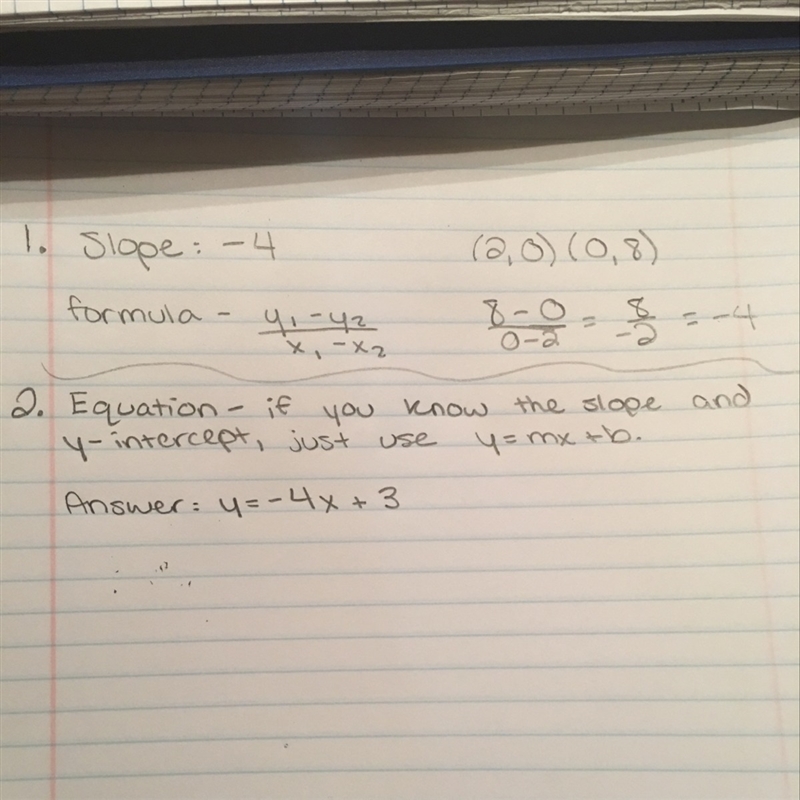 1. Slope: -4 (2,0) (0,8)
formula - y₁-y₂/x₁-x₂ 8-0/0-2 = 8/-2 = -4
2. Equation - if you know the slope and
y-intercept, just use y=mx+b.
Answer: y=-4x+3